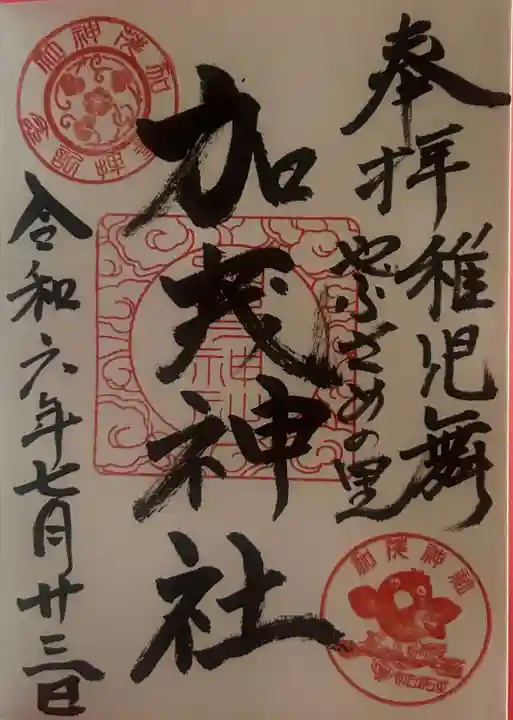 奉拝 稚児舞
やぶさめの里
加茂神社
令和六年七月廿三日
加茂神社
加茂神社